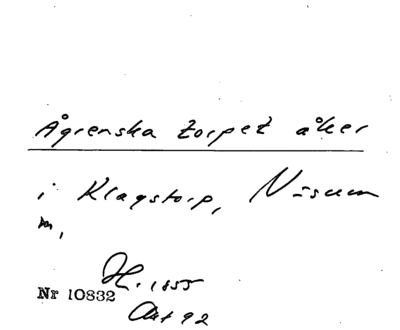 Ågrenska torpet åker
i Klagstorp, N
m,
H. 1855
Nr 10832
Akt 92